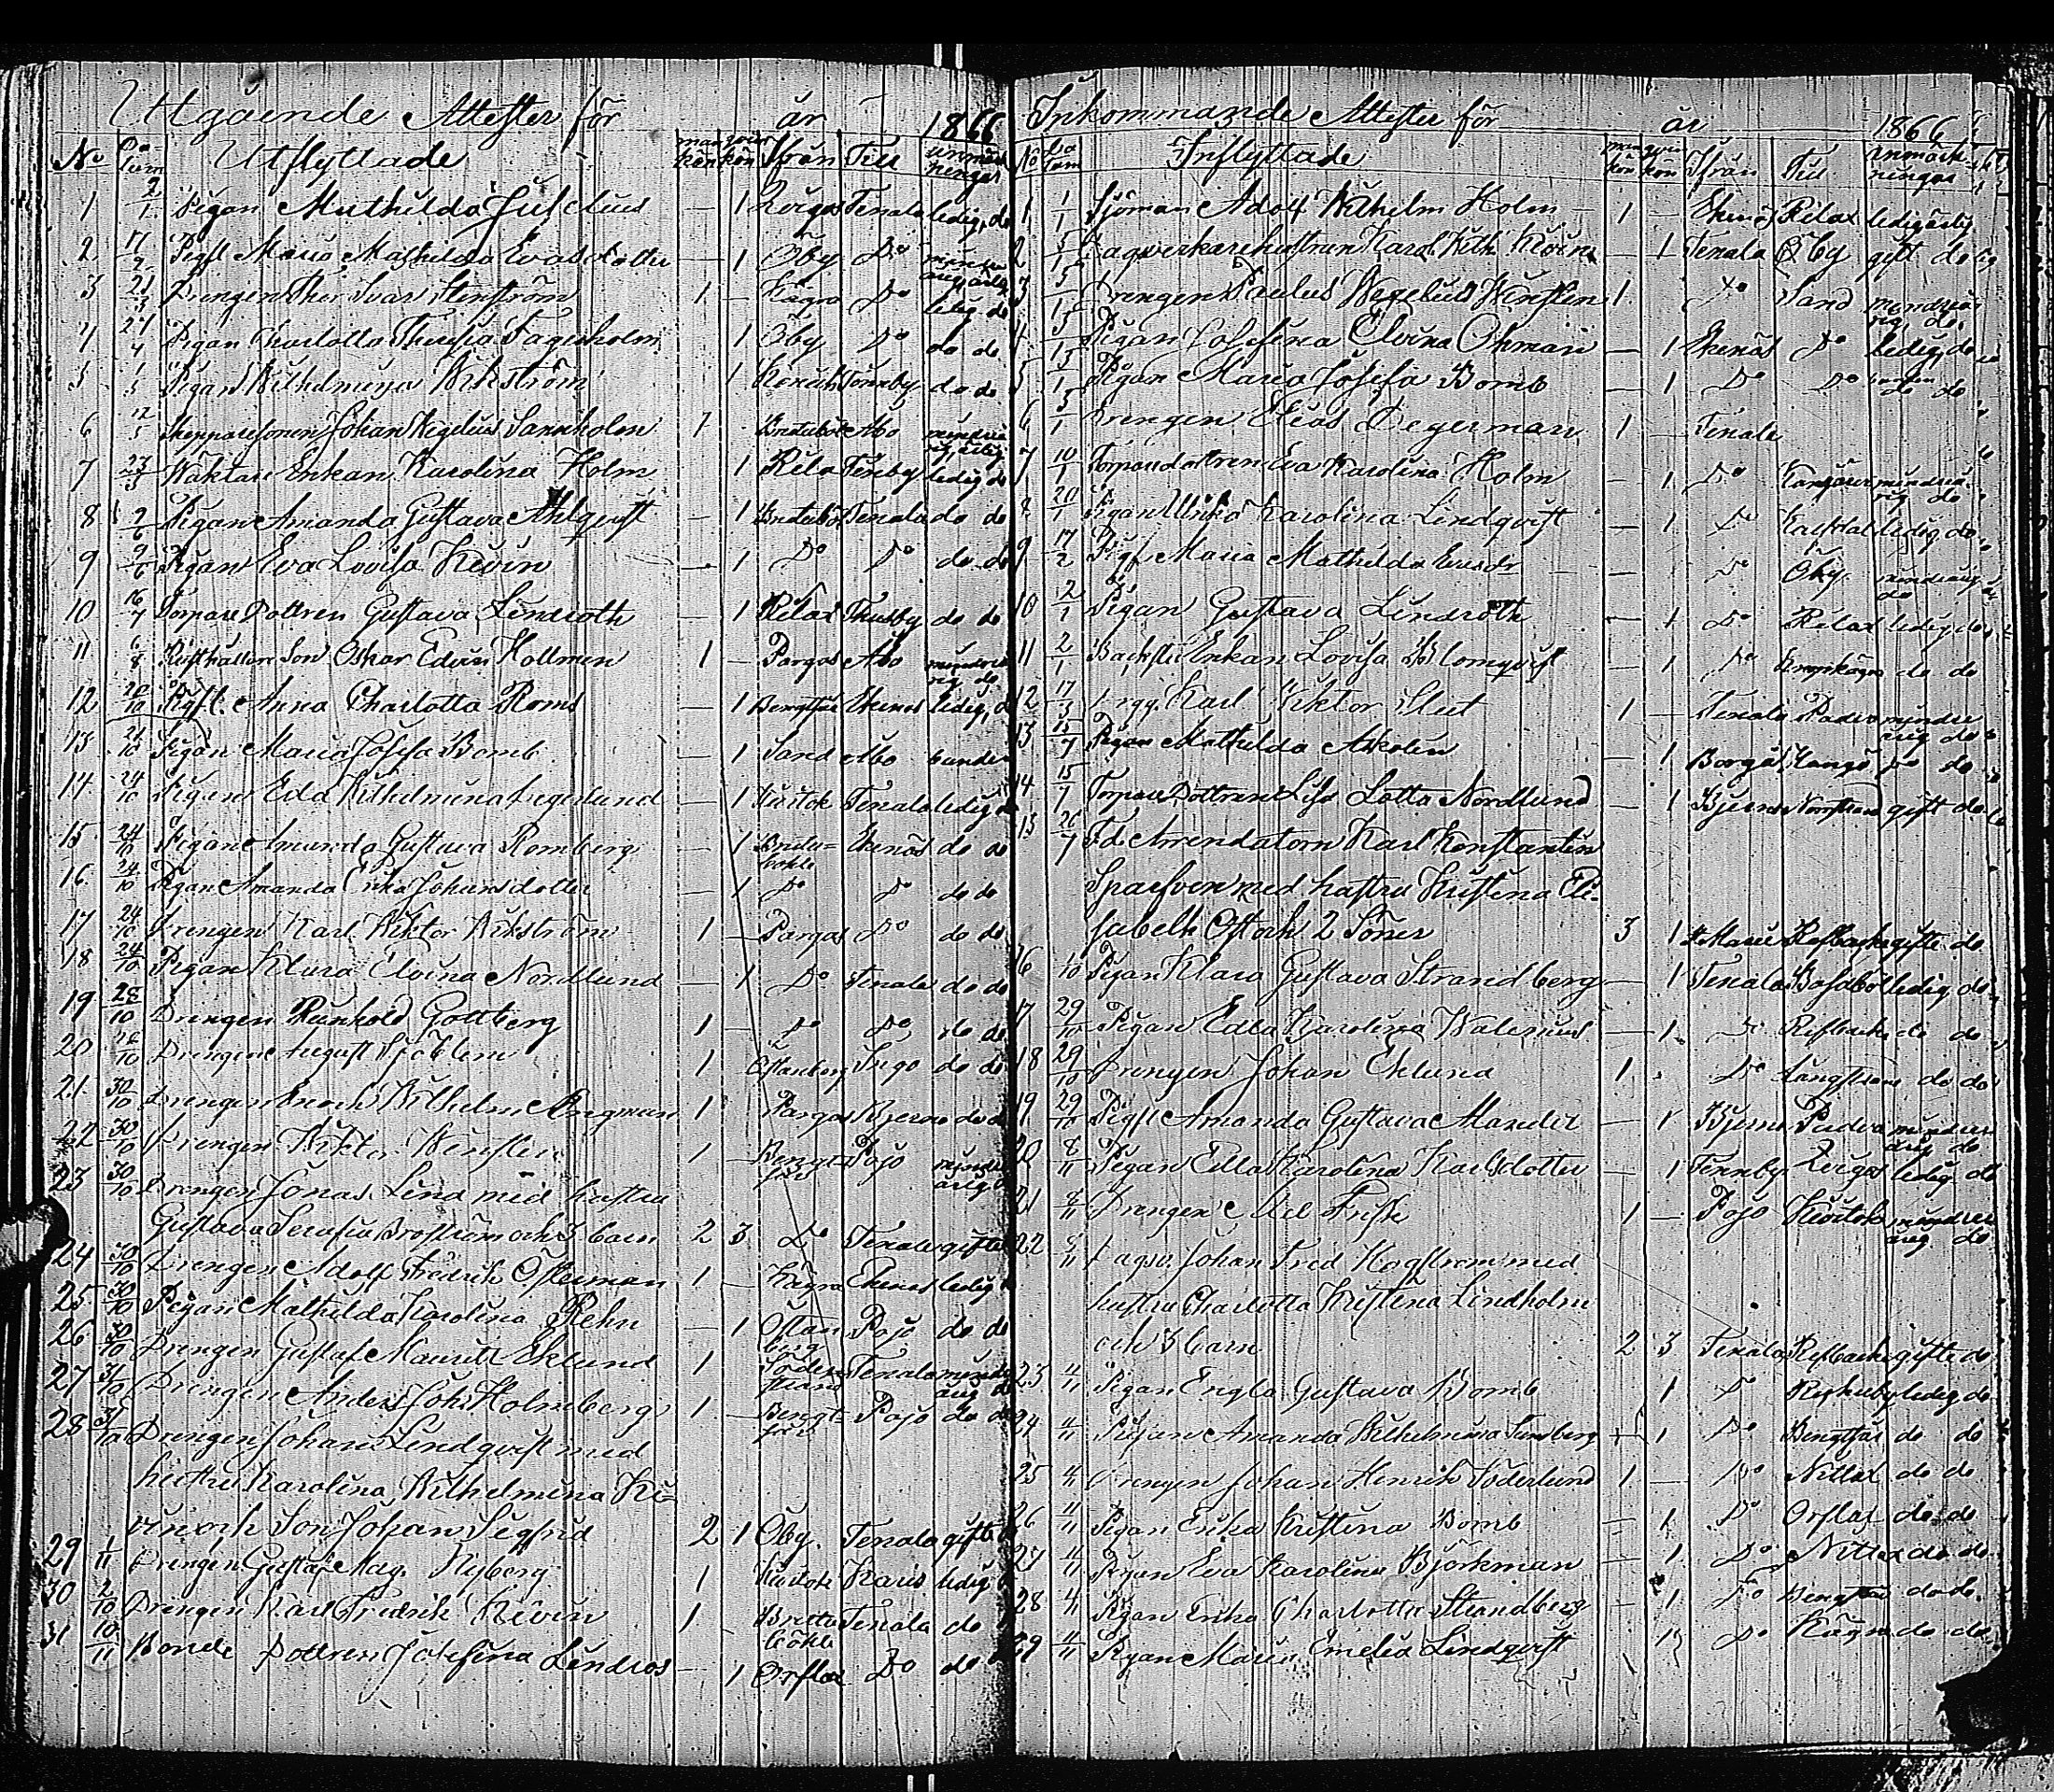 Utgående Attester för år 1866
No Datum Utflyttade mankön qvinkön Ifrån Till Anmärkningar
1 2/1 Pigan Mathilda Juselius — 1 Zergas Tenala ledig, do
2 17/2 Pigfl Maria Mathilda Evasdotter — 1 Öby Do
3 23/3 Drengen Ther Ivar Stenström 1 — Kägra Do ledig do
4 24/4 Pigan Charlotta Theresia Fagerholm 1 Öby Do do do
5 1/5 Pigan Wilhelmina Wikström 1 Tennby do do
6 12/5 Skepparesonen Johan Wigelius Sannholm 1 Åbo
7 23/5 Waktare Enkan Karolina Holm 1 Rila Tenby ledig do
8 9/6 Pigan Amanda Gustava Ahlqvist — 1 Tenala do do
9 9/6 Pigan Eva Lovisa Kevin — 1 Do Do do do
10 16/7 Torpare Dottren Gustava Lindroth — 1 Relax Thusby do do
11 6/8 Rusthållare Son Oskar Edvin Hollmen 1 — Pargas Åbo mindreårig do
12 20/10 Pigfl. Anna Charlotta Roms — 1 Bengtsår Ekenäs ledig, d
13 21/10 Pigan Maria Josefa Bomb — 1 Sand Åbo
14 24/10 Pigan Eda Wilhelmina Segerlund — 1 Kustok Tenala ledig
15 24/10 Pigan Amanda Gustava Romberg — 1 Ekenäs do do
16 24/10 Pigan Amanda Erika Johansdotter — 1 Do Do do do
17 24/10 Drengen Karl Wiktor Wikström 1 — Pargas Do do do
18 24/10 Pigan Klara Elvina Nordlund — 1 Do Tenala do do
19 28/10 Drengen Runhold Gottberg 1 — Do Do do do
20 28/10 Drengen August Sjöblom 1 Östanberg Ingo do do
21 30/10 Drengen Enoch Wilhelm Angman 1 Pargas Bjerno do d
22 30/10 Drengen Wiktor Wenstén 1 — Bengtsår Pojo mindreårig
23 30/10 Drengen Jonas Lind med hustru
Gustava Serafia Broström och 3 barn 2 3 Do Tenala gifte
24 30/10 Drengen Adolf Fredrik Österman 1 — Kägra Ekenäs ledig
25 30/10 Pigan Mathilda Karolina Rehn — 1 Östanberg Pojo do do
26 30/10 Drengen Gustaf Mauritz Eklund 1 Söderstrand Tenala mindreårig do
27 31/10 Drengen Anders Joh. Holmberg 1 — Bengtsår Pojo do do
28 31/10 Drengen Johan Lindqvist med
hustru Karolina Wilhelmina Ke-
vin och Son Johan Segfrid 2 1 Öby. Tenala gifte
29 1/11 Drengen Gustaf Mag. Nyberg 1 Kustok Karis ledig
30 2/10 Drengen Karl Fredrik Kevin 1 Tenala do
31 10/11 Bonde Dottren Josefina Lindros — 1 Orslax Do do
Inkommande Attester för år 1866
No Datum Inflyttade mankön qvinkön Ifrån Till Anmärkningar
1 1/1 Sjöman Adolf Wilhelm Holm — 1 — Ekenäs Relax
2 5/1 Dagsverkarehustrun Karol. Wilh. Kevin — 1 Tenala Öby gift do
3 5/1 Drengen Paulus Wigelius Wenstén 1 Do Sand mindreårig do.
4 5/1 Pigan Josefina Elvina Öhman — 1 Ekenäs Do ledig, do
5 5/1 Pigan Maria Josefa Bomb — 1 Do Do do do
6 5/1 Drengen Elias Degerman 1 — Tenala
7 10/1 Torparedottren Eva Karolina Holm — 1 Do mindreårig do
8 20/1 Pigan Ulrika Karolina Lindqvist — 1 Do ledig do
9 17/2 Pigf. Maria Mathilda Evasdr — Do Öby mindreårig do
10 2/1 Pigan Gustava Lindroth — 1 Do Relax ledig do
11 2/1 Backstu Enkan Lovisa Blomqvist — 1 Do do do
12 17/3 Karl Wiktor Slut 1 — Tenala Padva mindreårig do
13 15/7 Pigan Mathilda Askolin — 1 Borgå Hangö Do do
14 15/7 Torpare Dottren Lisa Lotta Nordlund — 1 Bjerno gift do
15 26/7 Fd Arrendatorn Karl Konstantin
Sparfven med hustru Kristina Eli-
sabeth Öst och 2 Söner 3 1 St Marie Resbacka gifte do
16 1/10 Pigan Klara Gustava Strandberg — 1 Tenala Bossböl ledig do
17 29/10 Pigan Edla Karolina Walerius — 1 Do Resbacka do do
18 29/10 Drengen Johan Eklund 1 . Do Långstrand do do
19 29/10 Pigfl Amanda Gustava Mandelt — 1 Bjerno Padva mindreårig do
20 8/11 Pigan Edla Karolina Karlsdotter — 1 Tennby Zergas ledig do
21 8/11 Drengen Axel Frisk 1 — Pojo Kustok mindreårig do
22 Dagsv. Johan Fred Hogström med
hustru Charlotta Kristina Lindholm
och 3 barn 2 3 Tenala Resbacka gifte do
23 4/11 Pigan Engla Gustava Bomb 1 Do ledig do
24 4/11 Pigan Amanda Wilhelmina Sundberg 1 Do Bengtsår do do
25 4/11 Drengen Johan Henrik Söderlund 1 — Do Nittlax do do
26 4/11 Pigan Erika Kristina Bomb — 1 Do Orslax do do
27 4/11 Pigan Eva Karolina Björkman — 1 Do Nittlax do do
28 4/11 Pigan Erika Charlotta Strandberg — 1 Do Bengtsår do do.
29 4/11 Pigan Maria Emelia Lindqvist 1 Do Kägra do do